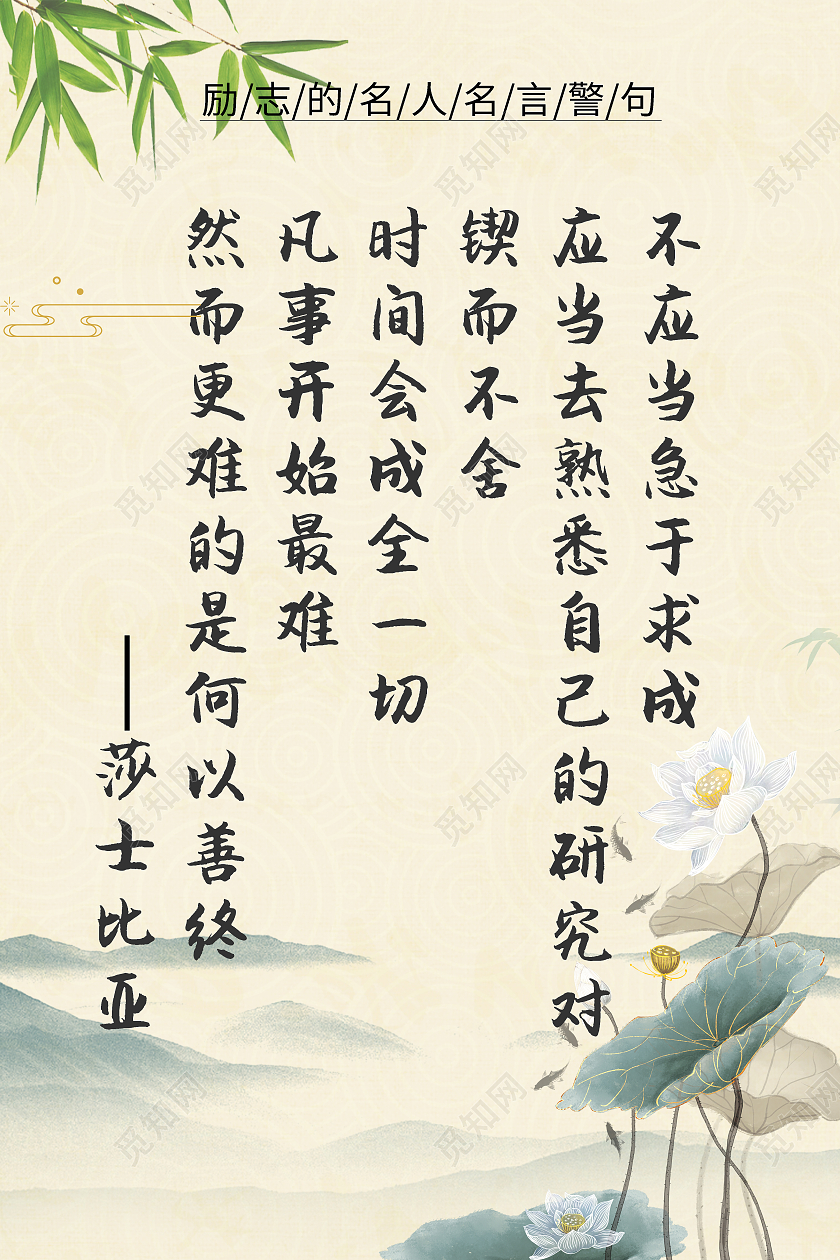 励/志/的/名/人/名/言/警/句
不应当急于求成
应当去熟悉自己的研究对
锲而不舍
时间会成全一切
凡事开始最难
然而更难的是何以善终
——莎士比亚
觅知网